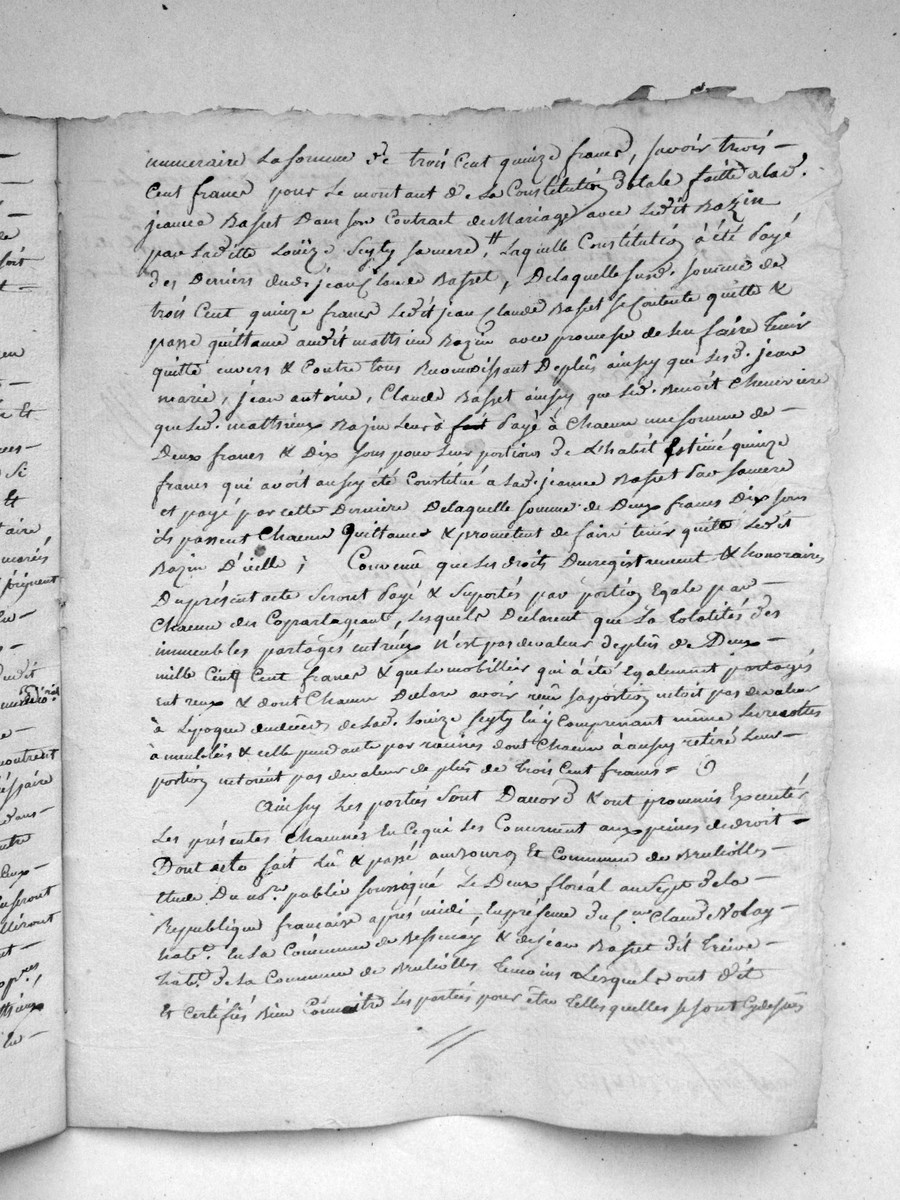 numeraire La somme de trois Cent quinze francs, savoir trois –
Cent francs pour Le montant de La Constitution dotale faitte a lad.
jeanne Basset Dans son Contract de Mariage avec Ledit Bazin
par Laditte Loüize Seyty sa mere, Laquelle Constitution à été Payé
des Deniers dud. jean Claude Basset, De laquelle susd. somme de
trois Cent quinze francs Ledit jean Claude Basset se Contente quitte &
passe quittance audit mathieu Bazin avec promesse de L'en faire tenir
quitte envers & Contre tous Reconoissant De plus ainsy que Lesd. jean
marie, jean antoine, Claude Basset ainsy que Led. Benoit Cheneviere
que Led. mathieux Bazin Leur à payé à Chacun une somme de –
Deux francs & Dix sous pour Leur portions de L'habit Estimé quinze
francs qui avoit aussy été Constitué a Lad. jeanne Basset Par sa mere
et payé par cette Derniere De laquelle somme de Deux francs Dix sous
ils passent Chacun quittance & promettent de faire tenir quitte Ledit
Bazin D'icelle ; Convenu que Les droits D'enregistrement & honoraires
Du présent acte Seront Payé & Suportés par portion Egale par –
Chacun des Copartageant, Lesquels Declarent que La totalités des
immeubles partagés entr'eux n'est pas de valeur de plus de Deux –
mille Cinq Cent francs & que Le mobillier qui à été également partagés
Entreux & dont Chacun Declare avoir reçu sa portion n'etoit pas de valeur
à L'époque du décès de Lad. Louize Seyty Lu y Comprenant même Les recoltes
à meublés & celle pendante par racines dont Chacun à aussy retiré Leur –
portion n'etoient pas de valeur de plus de trois Cent francs =
Ainsy Les partiés Sont D'acord & ont prommis Executér
Les présentes Chacunes En Ce qui Les Concernent aux peines de droit –
Dont acte fait Lû & passé au Bourg Et Commune de Brullioles –
Etude Du no.re public soussigné Le Deux floréal an Sept de la –
Republique francaise après midi, En présence du C.en Claude Nolay –
hab.t En La Commune de Bessenay & de jean Basset dit Trève –
hab.t de La Commune de Brullioles Temoins Lesquels ont dit
Et Certifiés Bien Connoitre Les partiés pour être Telles quelles se sont Cy dessus